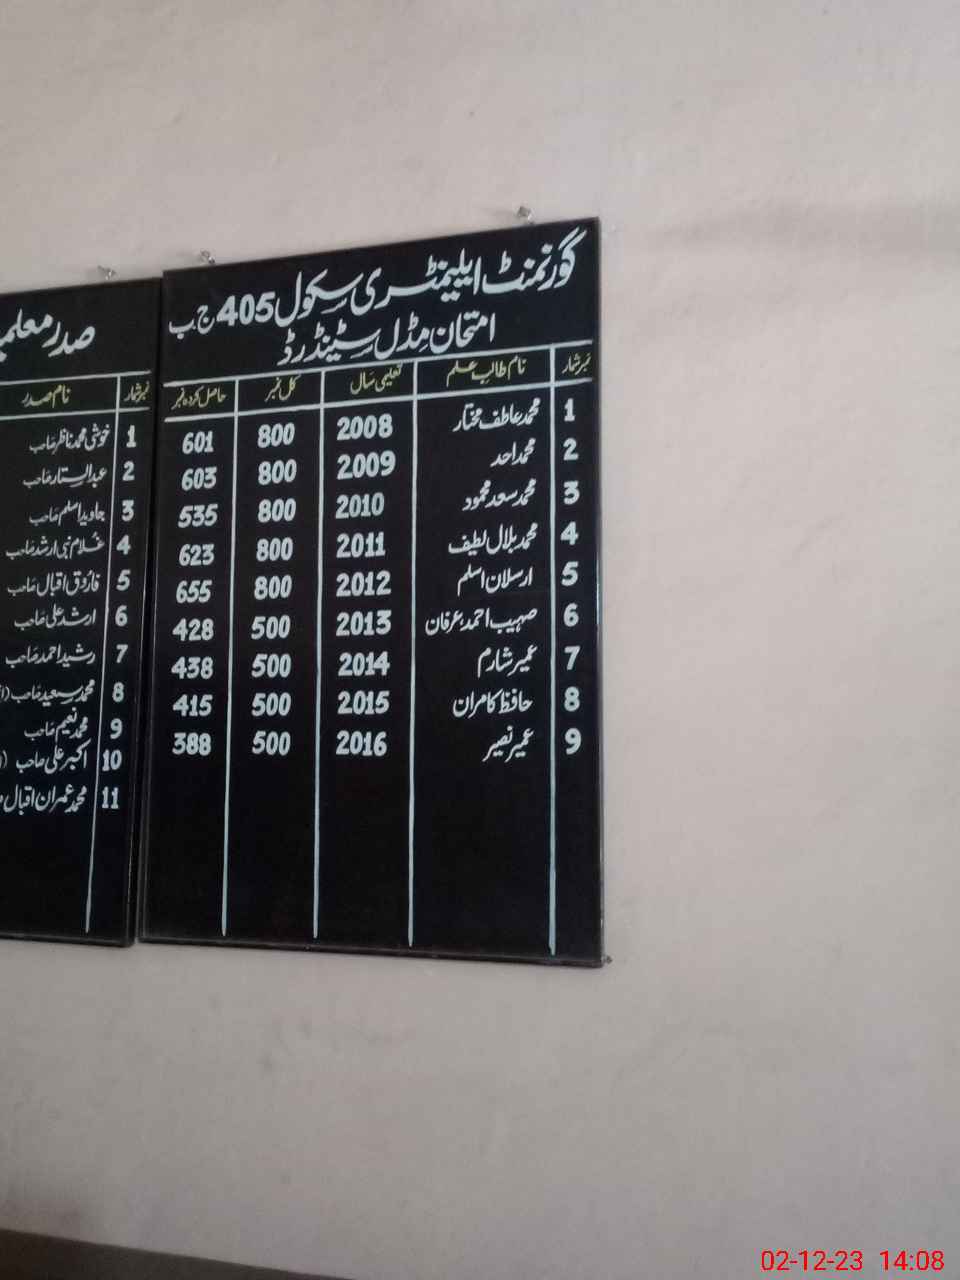 گورنمنٹ ایلیمنٹری سکول 405 ج ب
امتحان مڈل سٹینڈرڈ
نمبر شمار نام طالب علم تعلیمی سال کل نمبر حاصل کردہ نمبر
1 محمد عاطف مختار 2008 800 601
2 محمد احد 2009 800 603
3 محمد سعد محمود 2010 800 535
4 محمد بلال لطیف 2011 800 623
5 ارسلان اسلم 2012 800 655
6 صہیب احمد، عرفان 2013 500 428
7 عمیر شارم 2014 500 438
8 حافظ کامران 2015 500 415
9 عمیر نصیر 2016 500 388
صدر معلمی
نمبر شمار نام صدر
1 خوشی محمد ناظر صاحب
2 عبدالستار صاحب
3 جاوید اسلم صاحب
4 غلام نبی ارشد صاحب
5 فاروق اقبال صاحب
6 ارشد علی صاحب
7 رشید احمد صاحب
8 محمد سعید صاحب
9 محمد نعیم صاحب
10 اکبر علی صاحب
11 محمد عمران اقبال
02-12-23 14:08